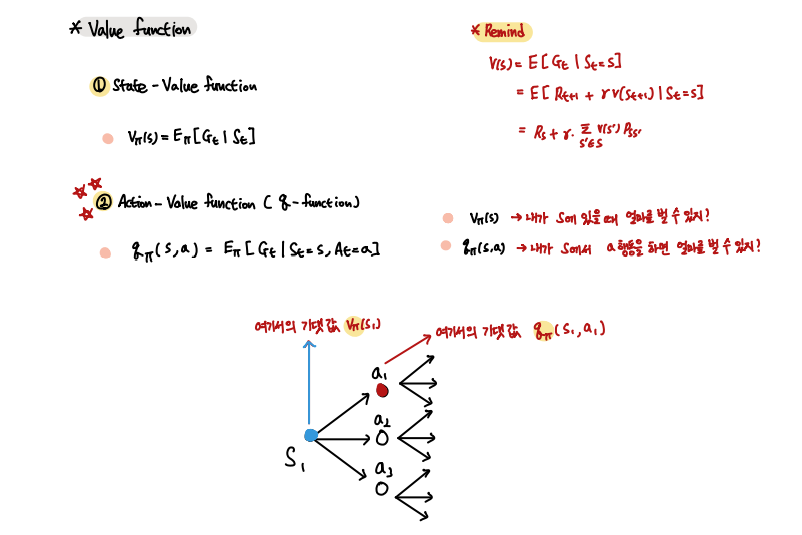 * Value function
① State - Value function
Vπ(s) = Eπ[Gt | St]
② Action - Value function (q - function)
qπ(s,a) = Eπ[Gt | St=s, At=a]
* Remind
V(s) = E[Gt | St=s]
= E[Rt+1 + γ v(St+1) | St=s]
= Rs + γ · Σ s'∈S V(s') Pss'
Vπ(s) → 내가 S에 있을 때 얼마를 벌 수 있지?
qπ(s,a) → 내가 S에서 a행동을 하면 얼마를 벌 수 있지?
여기서의 기댓값 Vπ(s1)
여기서의 기댓값 qπ(s1, a1)
a1
a2
a3
S1